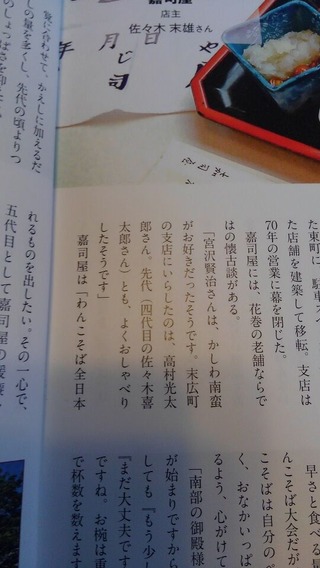 嘉司屋
店主
佐々木 末雄さん
年
月
日
や
じ
司
覚に合わせて、かえしに加えるだ
しの量を多くし、先代の頃よりつ
た東町に
た店舗を建築して移転。支店は
70年の営業に幕を閉じた。
嘉司屋には、花巻の老舗ならで
はの懐古談がある。
「宮沢賢治さんは、かしわ南蛮
がお好きだったそうです。末広町
の支店にいらしたのは、高村光太
郎さん。先代（四代目の佐々木喜
太郎さん）とも、よくおしゃべり
したそうです」
嘉司屋は「わんこそば全日本
れるものを出したい。その一心で、
五代目として嘉司屋の
早さと食べる
んこそば大会だが
こそばは自分のペ
く、おなかいっぱ
るよう、心がけて
「南部の御殿様
が始まりですから
しても『もう少し
『まだ大丈夫です
ですね。お椀は重
で杯数を数えます